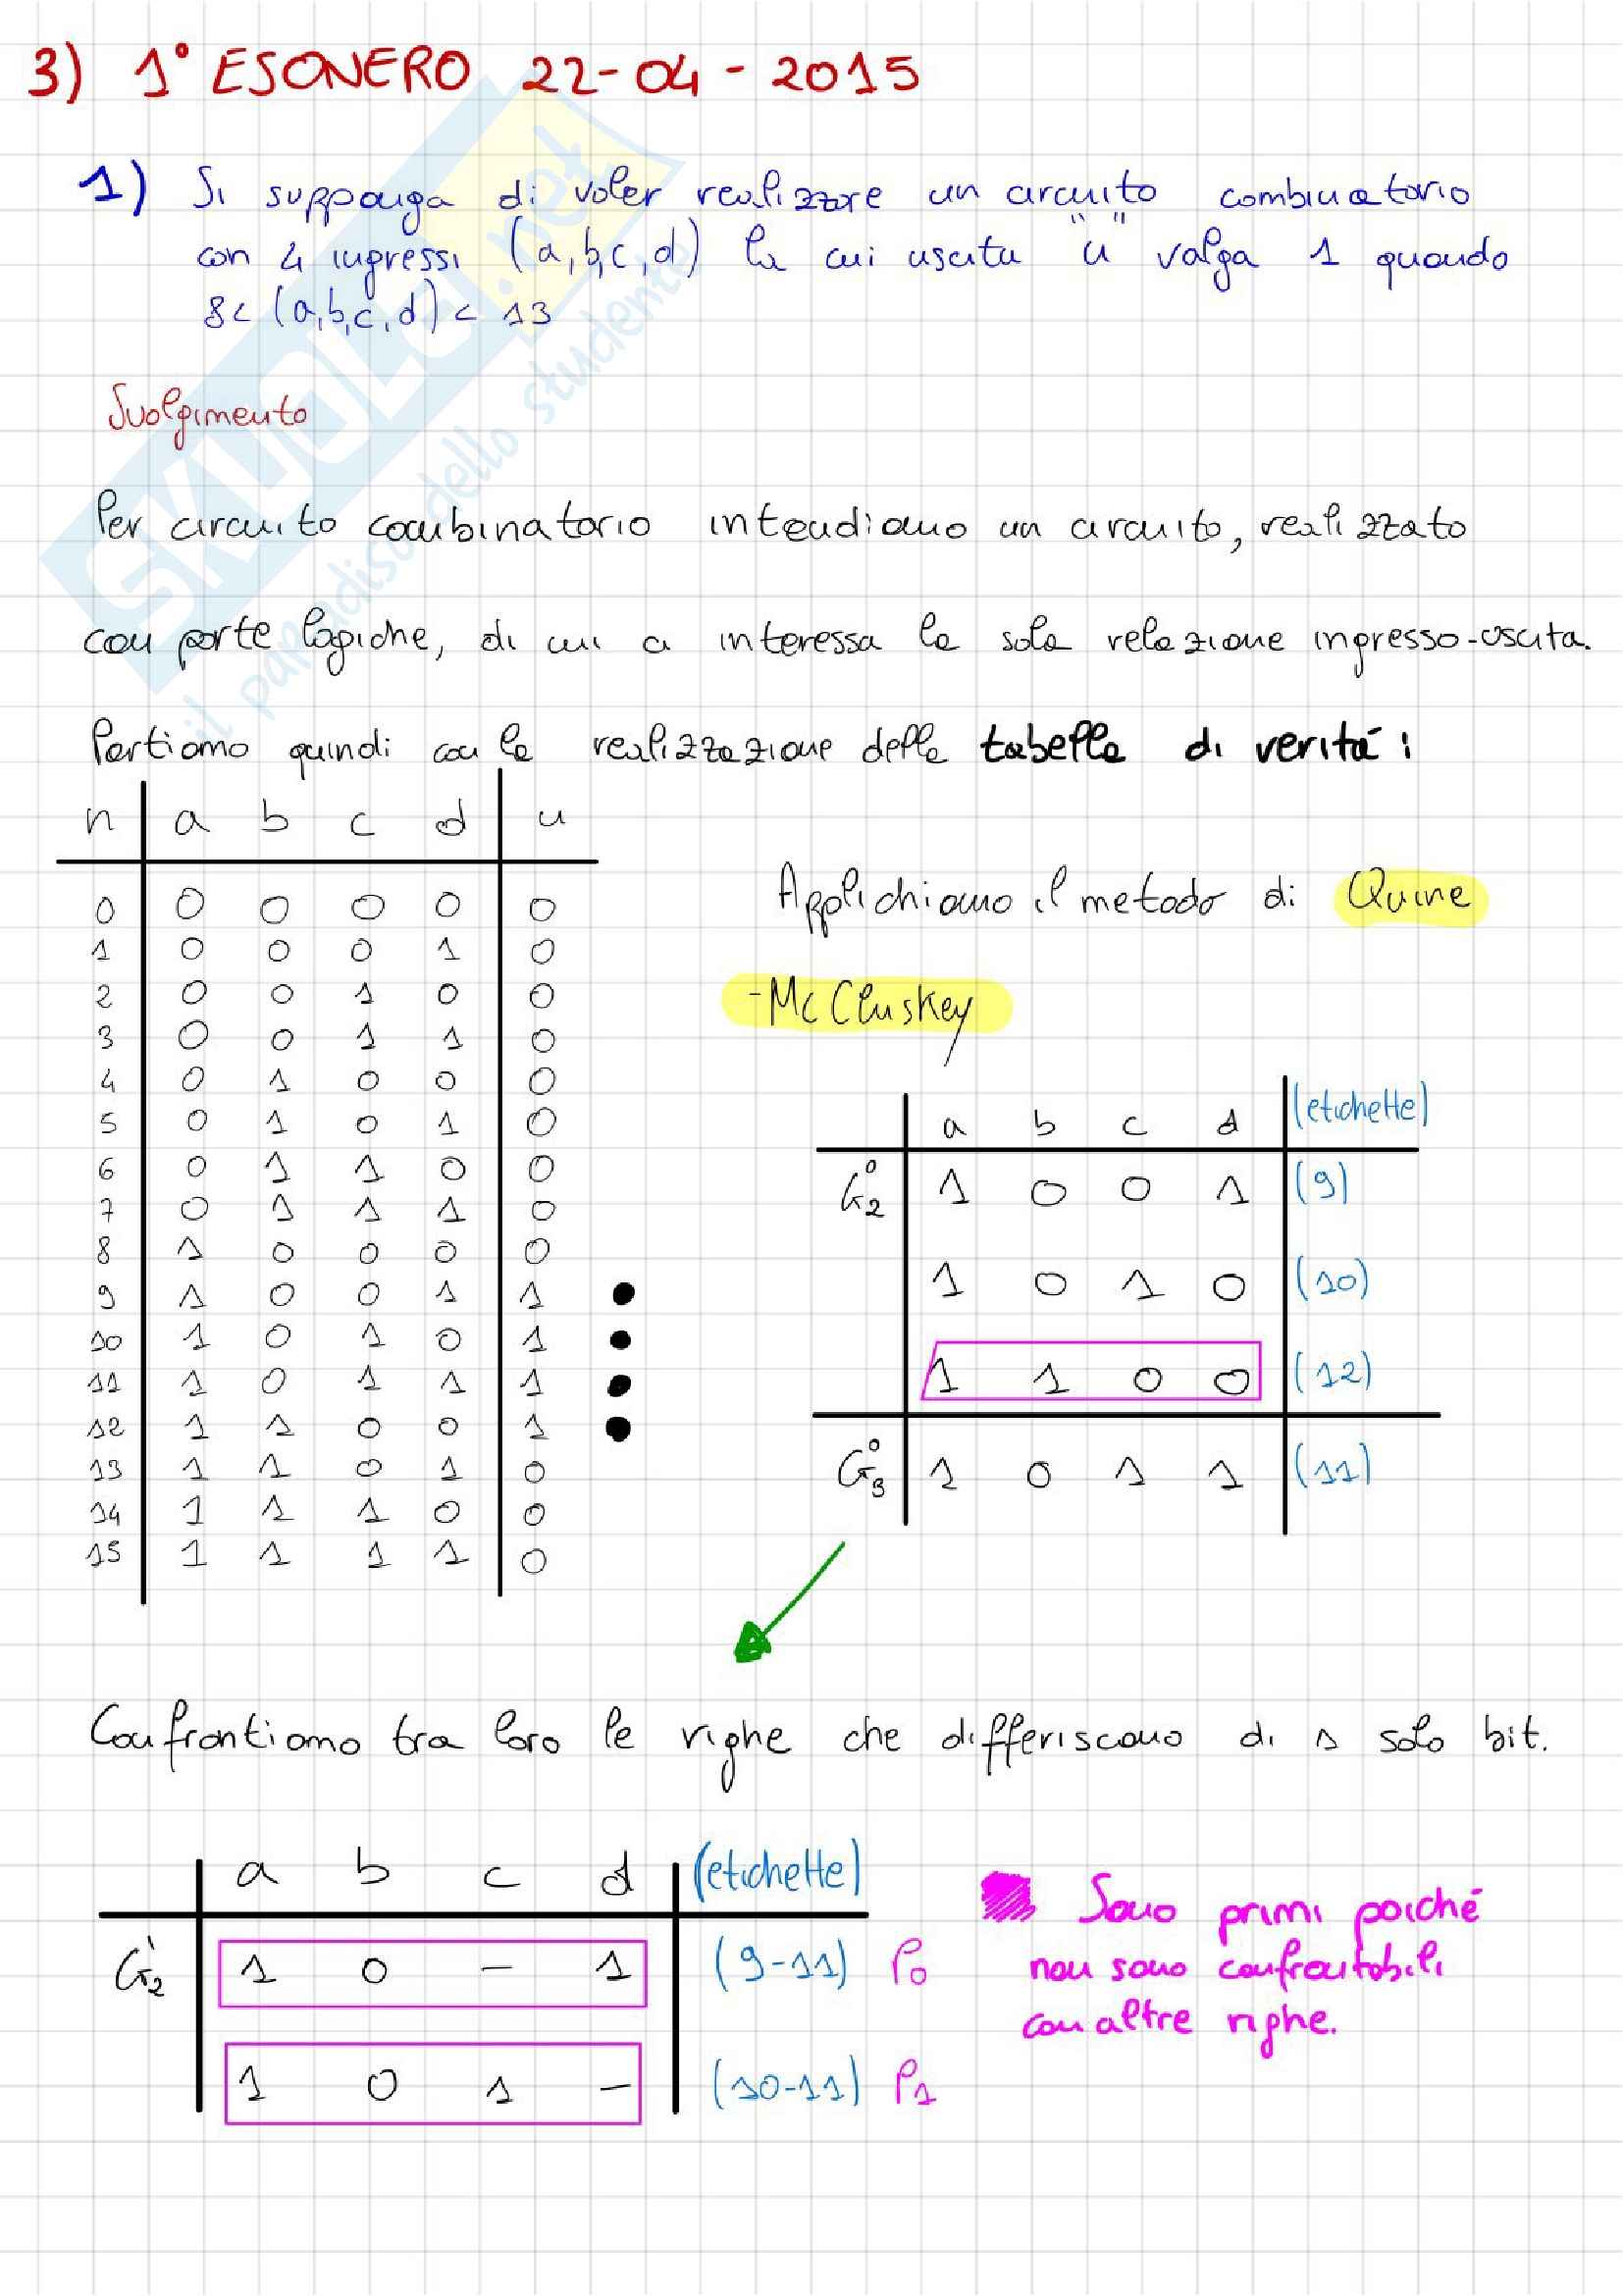 3) 1° ESONERO 22-04-2015
1) Si supponga di voler realizzare un circuito combinatorio
con 4 ingressi (a,b,c,d) la cui uscita "u" valga 1 quando
8< (a,b,c,d) < 13
Svolgimento
Per circuito combinatorio intendiamo un circuito, realizzato
con porte logiche, di cui ci interessa la sola relazione ingresso-uscita.
Partiamo quindi con la realizzazione della tabella di verità:
n a b c d u
0 0 0 0 0 0
1 0 0 0 1 0
2 0 0 1 0 0
3 0 0 1 1 0
4 0 1 0 0 0
5 0 1 0 1 0
6 0 1 1 0 0
7 0 1 1 1 0
8 1 0 0 0 0
9 1 0 0 1 1
10 1 0 1 0 1
11 1 0 1 1 1
12 1 1 0 0 1
13 1 1 0 1 0
14 1 1 1 0 0
15 1 1 1 1 0
Applichiamo il metodo di Quine
-McCluskey
a b c d (etichette)
G₂⁰ 1 0 0 1 (9)
1 0 1 0 (10)
1 1 0 0 (12)
G₃⁰ 1 0 1 1 (11)
Confrontiamo tra loro le righe che differiscono di 1 solo bit.
a b c d (etichette)
G₂¹ 1 0 - 1 (9-11) P₀
1 0 1 - (10-11) P₁
Sono primi poiché
non sono confrontabili
con altre righe.
SKUOLA.net
il paradiso dello studente